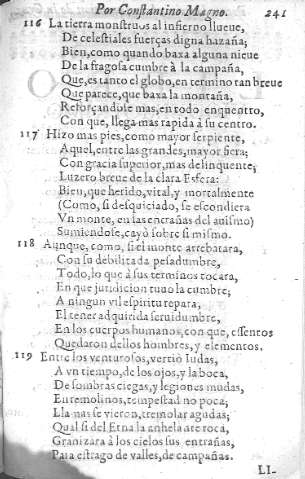 Por Constantino Magno. 241
116 La tierra monstruos al infierno llueue,
De celestiales fuerças digna hazaña;
Bien, como quando baxa alguna nieue
De la fragosa cumbre à la campaña,
Que, es tanto el globo, en termino tan breue
Que parece, que baxa la montaña,
Reforçandose mas, en todo enquentro,
Con que, llega mas rapida à su centro.
117 Hizo mas pies, como mayor serpiente,
Aquel, entre las grandes, mayor fiera;
Con gracia superior, mas delinquente;
Luzero breue de la clara Esfera:
Bien, que herido, vital, y mortalmente
(Como, si desquiciado, se escondiera
Vn monte, en las entrañas del auismo)
Sumiendose, cayò sobre si mismo.
118 Aunque, como, si el monte arrebatara,
Con su debilitada pesadumbre,
Todo, lo que à sus terminos tocara,
En que juridicion tuuo la cumbre;
A ningun vil espiritu repara,
El tener adquirida seruidumbre,
En los cuerpos humanos, con que, essentos
Quedaron dellos hombres, y elementos.
119 Entre los venturosos, vertiò Iudas,
A vn tiempo, de los ojos, y la boca,
De sombras ciegas, y legiones mudas,
En remolinos, tempestad no poca;
Llamas se vieron, tremolar agudas;
Qual si del Etna la anhelante roca,
Granizara à los cielos sus entrañas,
Para estrago de valles, de campañas.
LI-